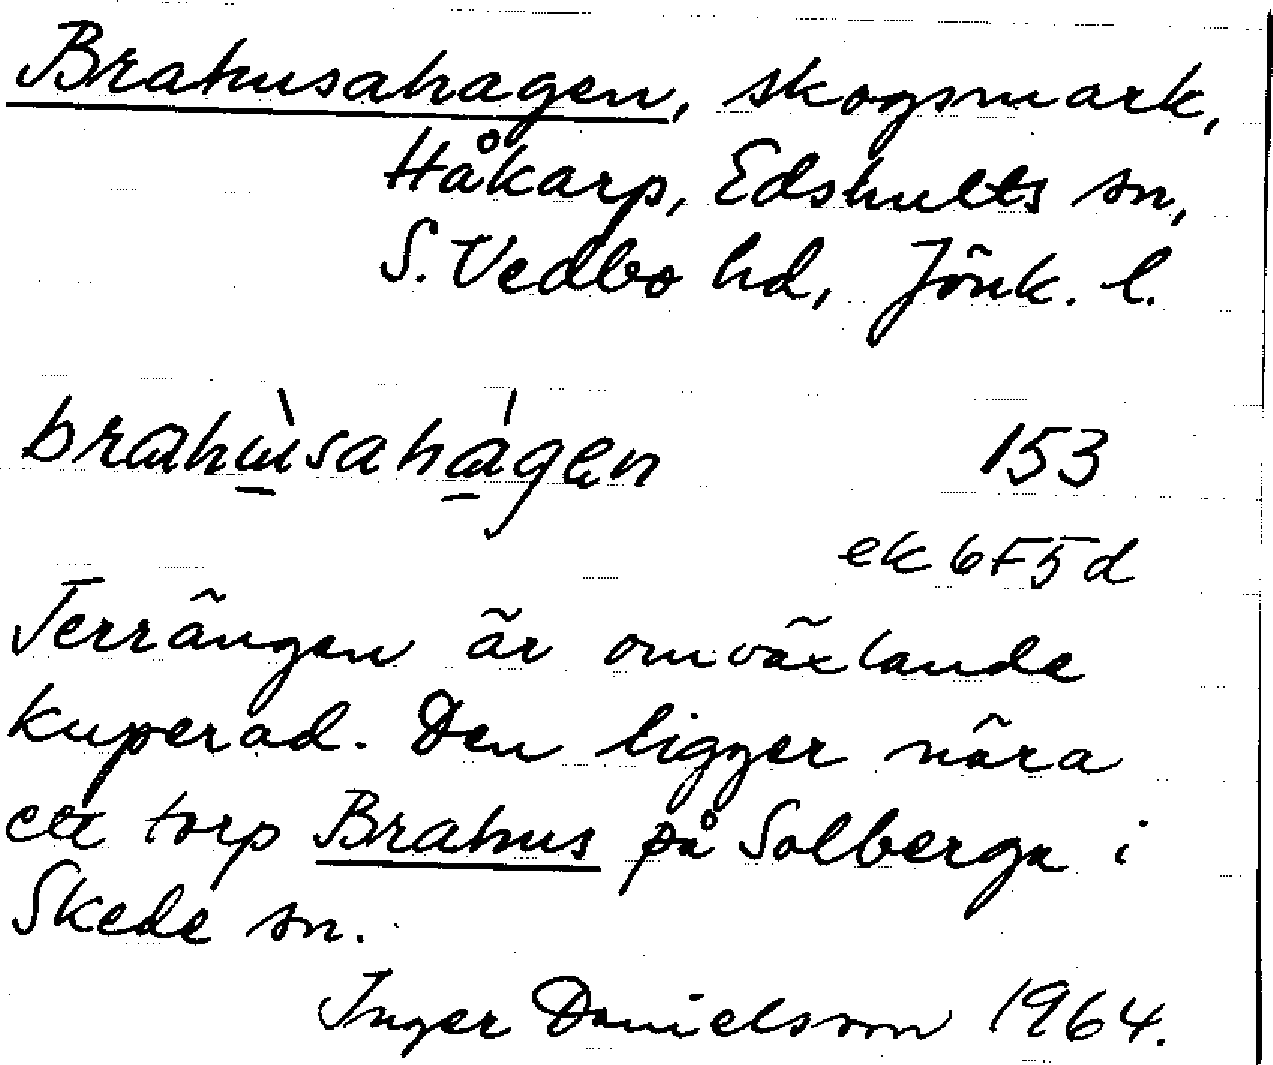 Brahusahagen, skogsmark,
Håkarp, Edshults sn,
S. Vedbo hd, Jönk. l.
brahù̱sahá̱gen 153
ek 6F5d
Terrängen är omväxlande
kuperad. Den ligger nära
ett torp Brahus på Solberga i
Skede sn.
Inger Danielsson 1964.